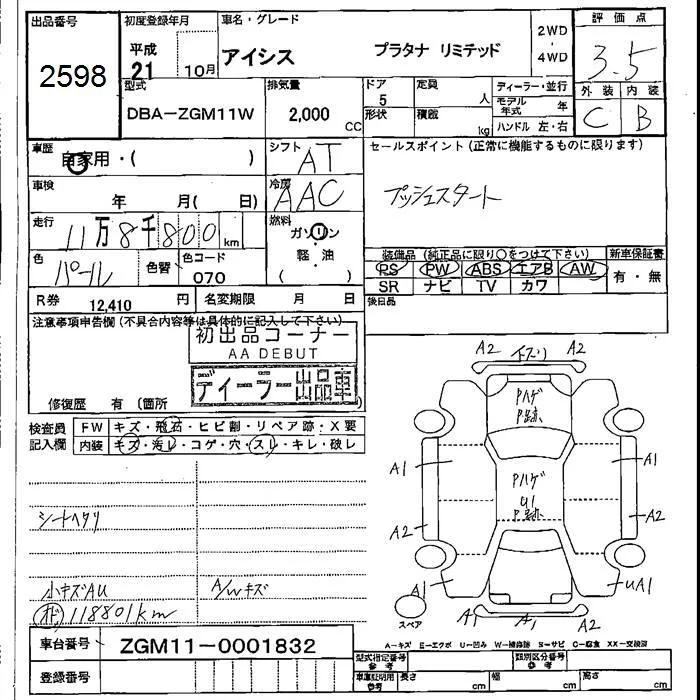 出品番号
2598
初度登録年月
平成
21 10月
車名・グレード
アイシス プラタナ リミテッド
2WD
・
4WD
評価点
3.5
外装 内装
C B
型式
DBA-ZGM11W
排気量
2,000 CC
ドア
5
形状
定員
人
積載
kg
ディーラー・並行
モデル年式 年
ハンドル 左・右
車歴
自家用・( )
シフト
AT
セールスポイント(正常に機能するものに限ります)
プッシュスタート
車検
年 月( 日)
冷房
AAC
走行
11万8千800 km
燃料
ガソリン
軽・油
( )
色
パール
色替
色コード
070
装備品 (純正品に限り○をつけて下さい)
PS PW ABS エアB AW
SR ナビ TV カワ
新車保証書
有・無
R券 12,410 円
名変期限 月 日
後日品
注意事項申告欄 (不具合内容等は具体的に記入して下さい)
初出品コーナー
AA DEBUT
ディーラー出品車
修復歴 有 (箇所
検査員記入欄
FW キズ・飛石・ヒビ割・リペア跡・X要
内装 キズ・汚レ・コゲ・穴・スレ・キレ・破レ
シートヘタリ
小キズAU A/Wキズ
118801km
A2 キズリ A2
Pハゲ
P跡
A1 A1
Pハゲ
U1
P跡
A2 A2
A1 UA1
スペア
A1 A1 A2
車台番号 ZGM11-0001832
登録番号
A-キズ E-エクボ U-凹み W-補修跡 S-サビ C-腐食 XX-交換済
型式指定番号 参考
類別区分番号 参考
車庫証明用 参考
長さ cm 幅 cm 高さ cm